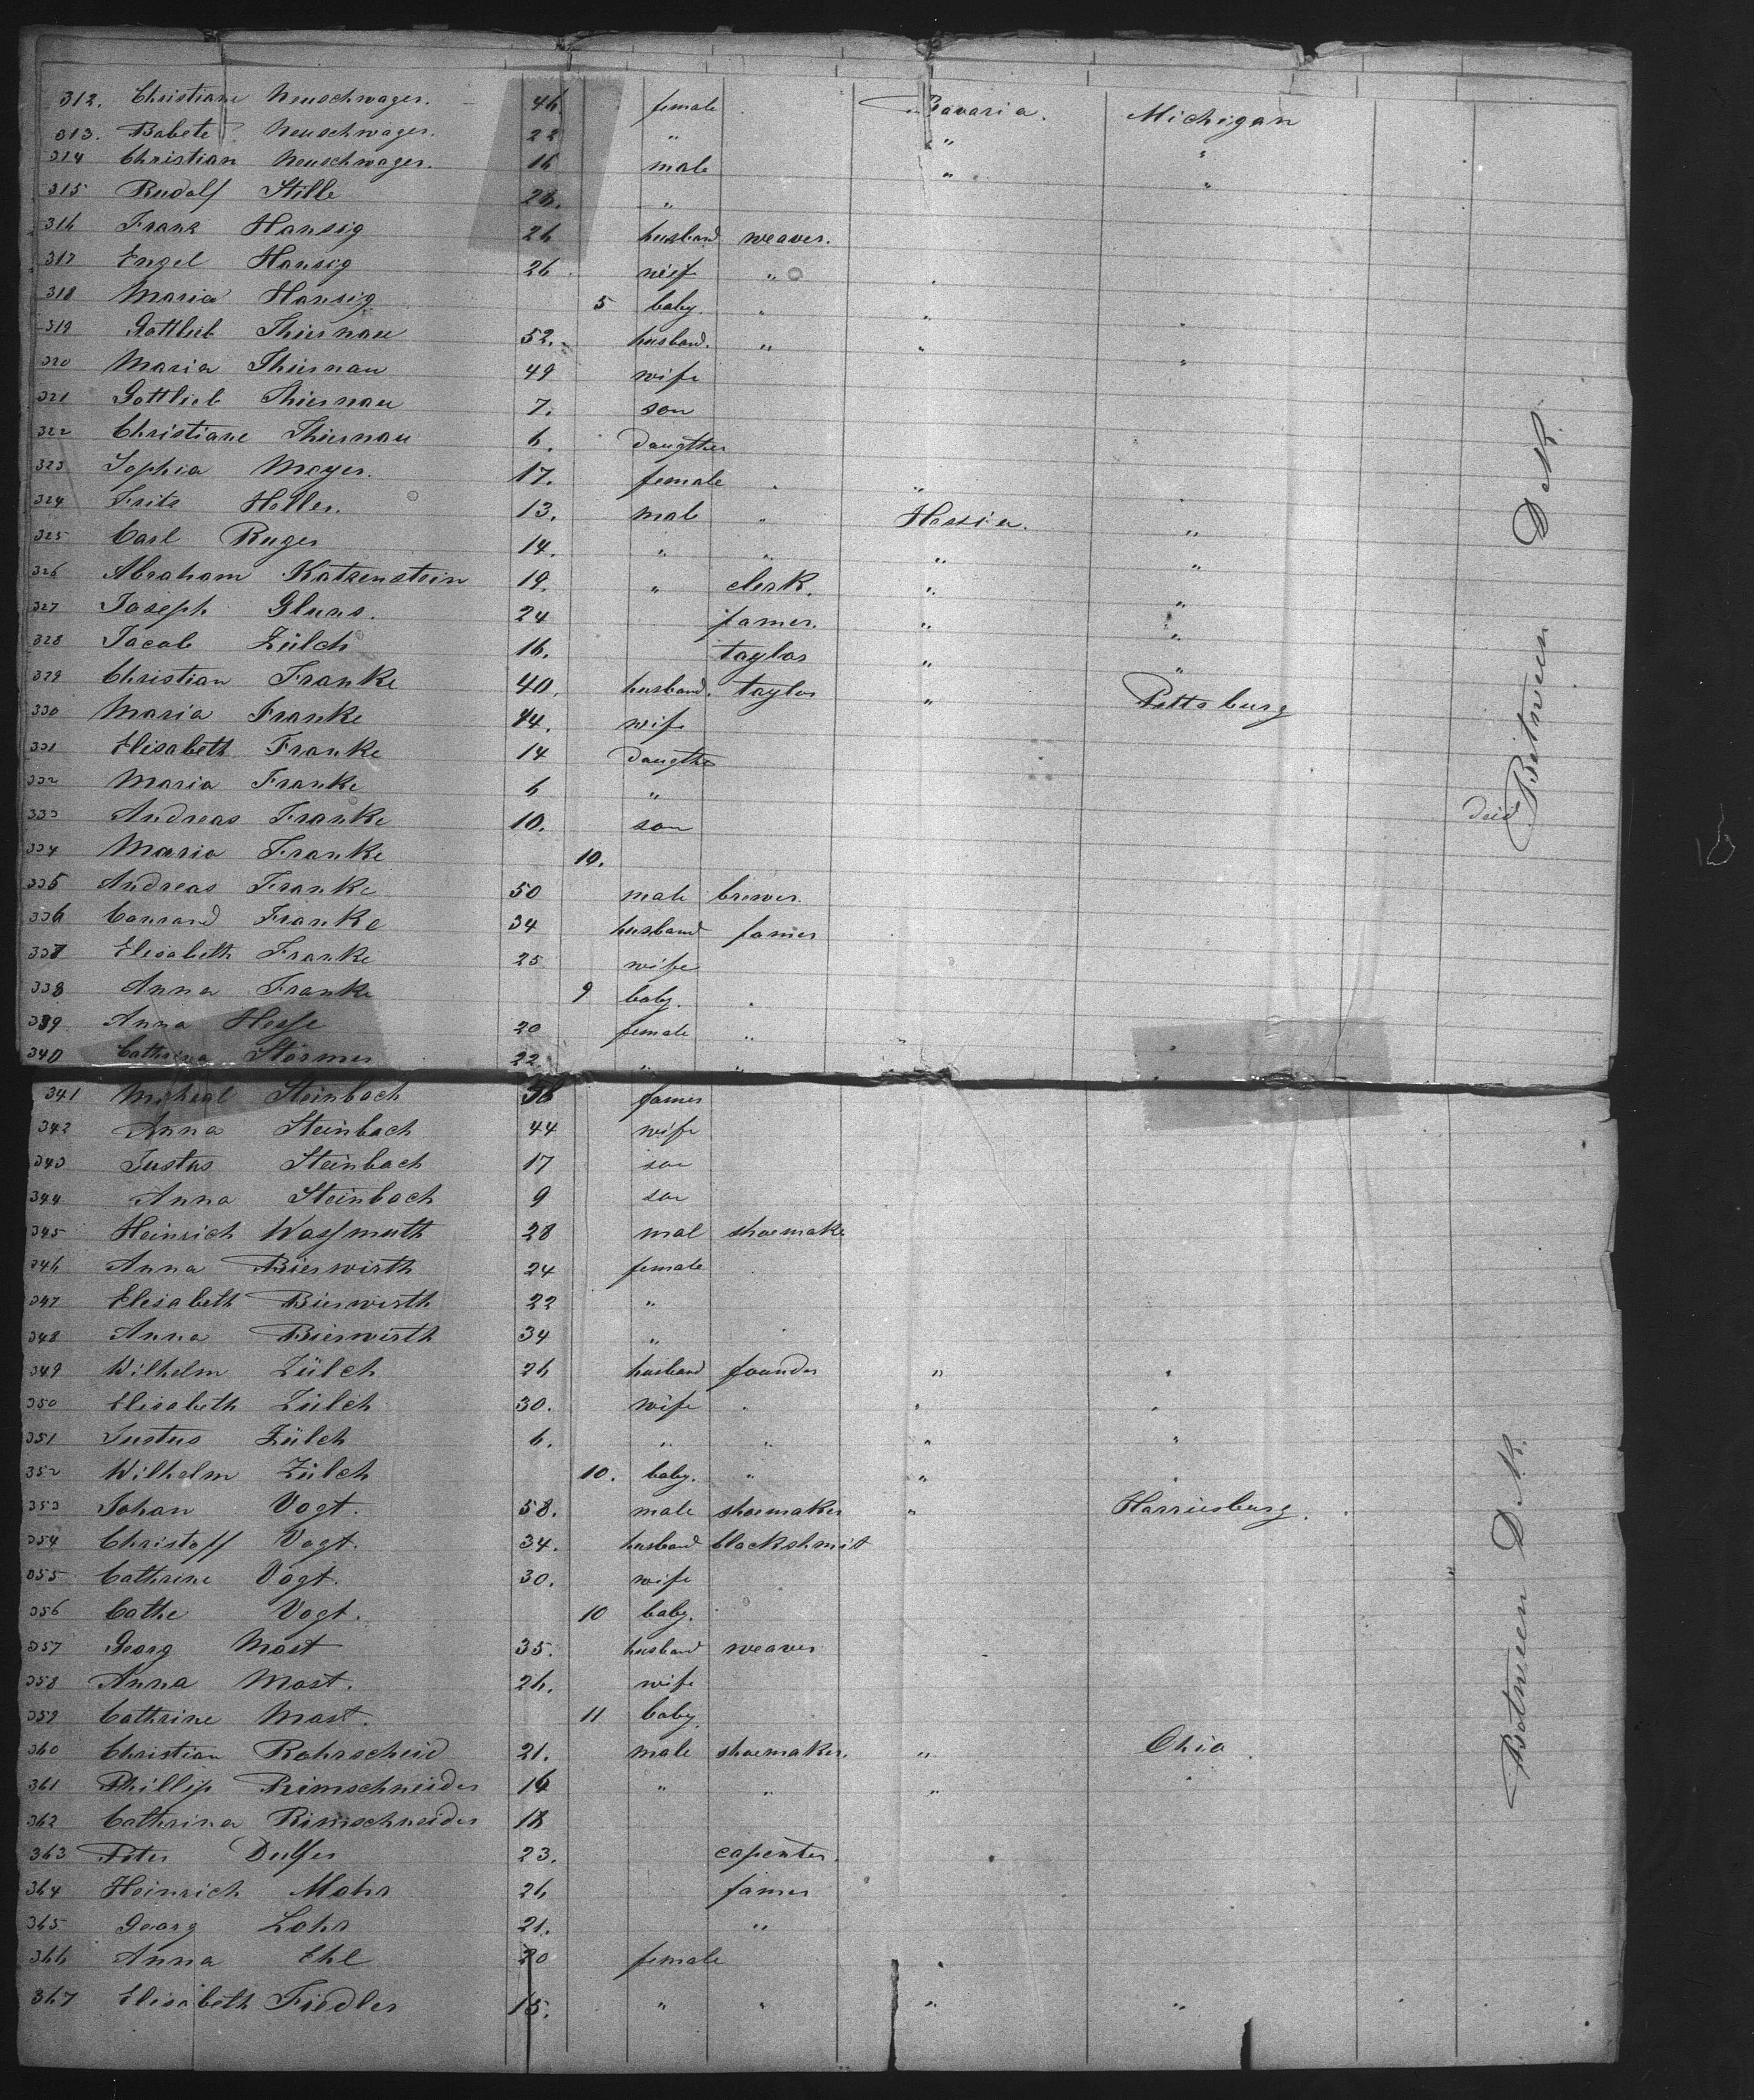 312. Christiane Neuschwager. 46 female Bavaria. Michigan
313. Babete Neuschwager. 22 " " "
314 Christian Neuschwager. 16 male " "
315 Rudolf Stille 28. "
316 Franz Hansig 26 husband weaver.
317 Engel Hansig 26 wife "
318 Maria Hansig 5 baby. " " "
319 Gottlieb Thiernau 52. husband. " " "
320 Maria Thiernau 49 wife
321 Gottlieb Thiernau 7. son
322 Christiane Thiernau 6. daugther
323 Sophia Mayer. 17. female "
324 Fritz Holler. 13. male " Hessia. "
325 Carl Ruger 14. " " " "
326 Abraham Katzenstein 19. " clerk. " "
327 Joseph 24 famer. " "
328 Jacob Zülch 16. taylor " "
329 Christian Franke 40. husband. taylor " Pittsburg
330 Maria Franke 44. wife
331 Elisabeth Franke 14 daugther
332 Maria Franke 6 "
333 Andreas Franke 10. son deid
334 Maria Franke 10.
335 Andreas Franke 50 male brewer.
336 Conrand Franke 34 husband famer
337 Elisabeth Franke 25 wife
338 Anna Franke 9 baby.
339 Anna Hesse 20 female "
340 Cathrina Störmer 22 " "
341 Micheal Steinbach famer
342 Anna Steinbach 44 wife
343 Justus Steinbach 17 son
344 Anna Steinbach 9 son
345 Heinrich Wassmuth 28 mal shoemake
346 Anna Bierwirth 24 female
347 Elisabeth Bierwirth 22 "
348 Anna Bierwirth 34 "
349 Wilhelm Zülch 26 husband founder " "
350 Elisabeth Zülch 30. wife " "
351 Justus Zülch 6. " " " "
352 Wilhelm Zülch 10. baby. " " "
353 Johan Vogt. 58. male shoemaker " Harriesburg.
354 Christoff Vogt. 34. husband blackshmit
355 Cathrine Vogt. 30. wife
356 Cathe Vogt. 10 baby.
357 Georg Mast 35. husband weaver
358 Anna Mast. 26. wife
359 Cathrine Mast. 11 baby
360 Christian Rohrscheid 21. male shoemaker. " Ohio
361 Phillip Rimschneider 16 " " " "
362 Cathrina Rimschneider 18
363 Peter Dulfer 23. capenter.
364 Heinrich Mohr 26 famer
365 Georg Lohr 21. "
366 Anna Ehl 20 female
367 Elisabeth Fiedler 15. " " " "
Between D.K.
Between D.K.